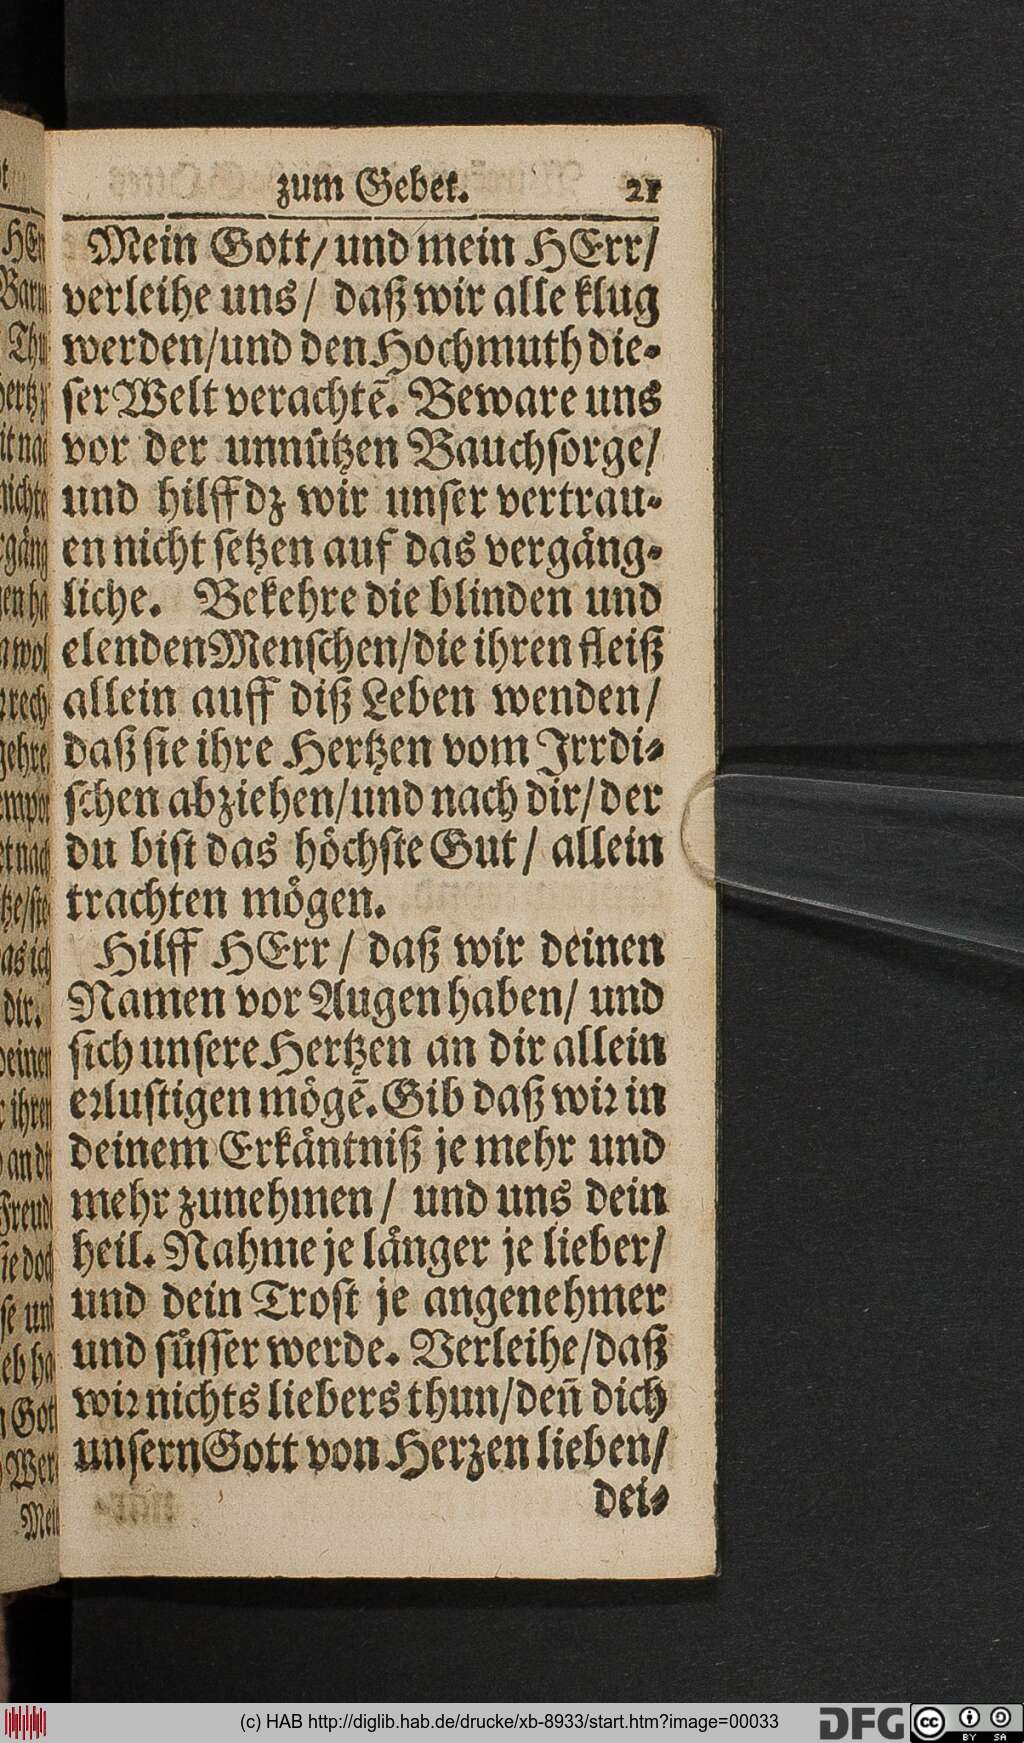 zum Gebet. 21
Mein Gott/ und mein HErr/
verleihe uns/ daß wir alle klug
werden/und den Hochmuth die-
ser Welt verachtē. Beware uns
vor der unnützen Bauchsorge/
und hilff dz wir unser vertrau-
en nicht setzen auf das vergäng-
liche. Bekehre die blinden und
elenden Menschen/die ihren fleiß
allein auff diß Leben wenden/
daß sie ihre Hertzen vom Irrdi-
schen abziehen/und nach dir/der
du bist das höchste Gut/ allein
trachten mögen.
Hilff HErr/ daß wir deinen
Namen vor Augen haben/ und
sich unsere Hertzen an dir allein
erlustigen mögē. Gib daß wir in
deinem Erkäntniß je mehr und
mehr zunehmen/ und uns dein
heil. Nahme je länger je lieber/
und dein Trost je angenehmer
und süsser werde. Verleihe/daß
wir nichts liebers thun/den̄ dich
unsern Gott von Herzen lieben/
dei-
(c) HAB http://diglib.hab.de/drucke/xb-8933/start.htm?image=00033
DFG cc BY SA